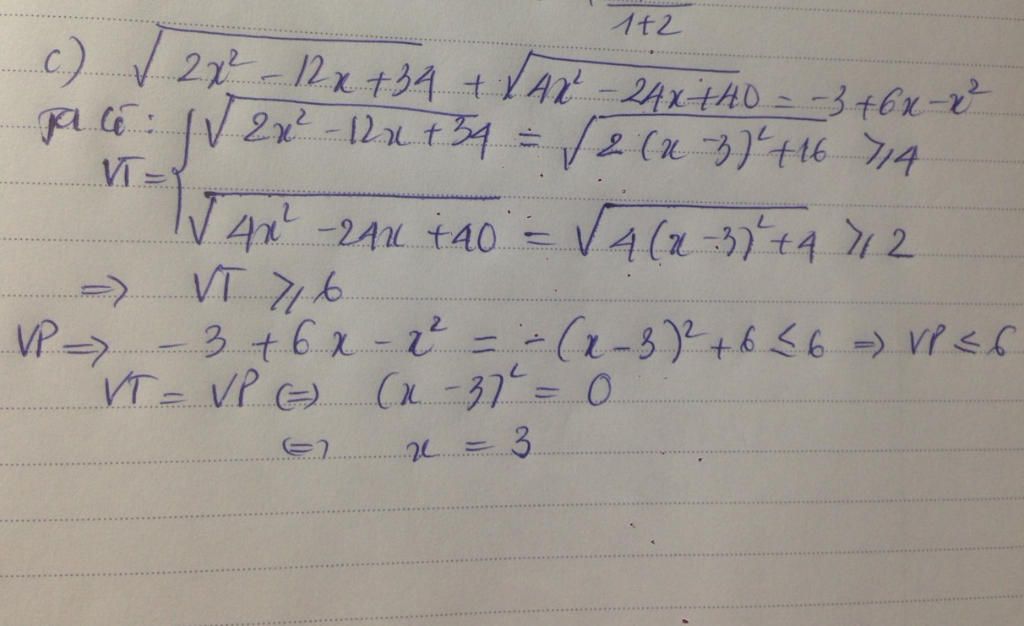 1+2
c) √(2x² - 12x + 34) + √(4x² - 24x + 40) = -3 + 6x - x²
Ta có: { √(2x² - 12x + 34) = √(2(x - 3)² + 16) ⩾ 4
VT =
√(4x² - 24x + 40) = √(4(x - 3)² + 4) ⩾ 2
=> VT ⩾ 6
VP => - 3 + 6x - x² = -(x - 3)² + 6 ≤ 6 => VP ≤ 6
VT = VP <=> (x - 3)² = 0
<=> x = 3